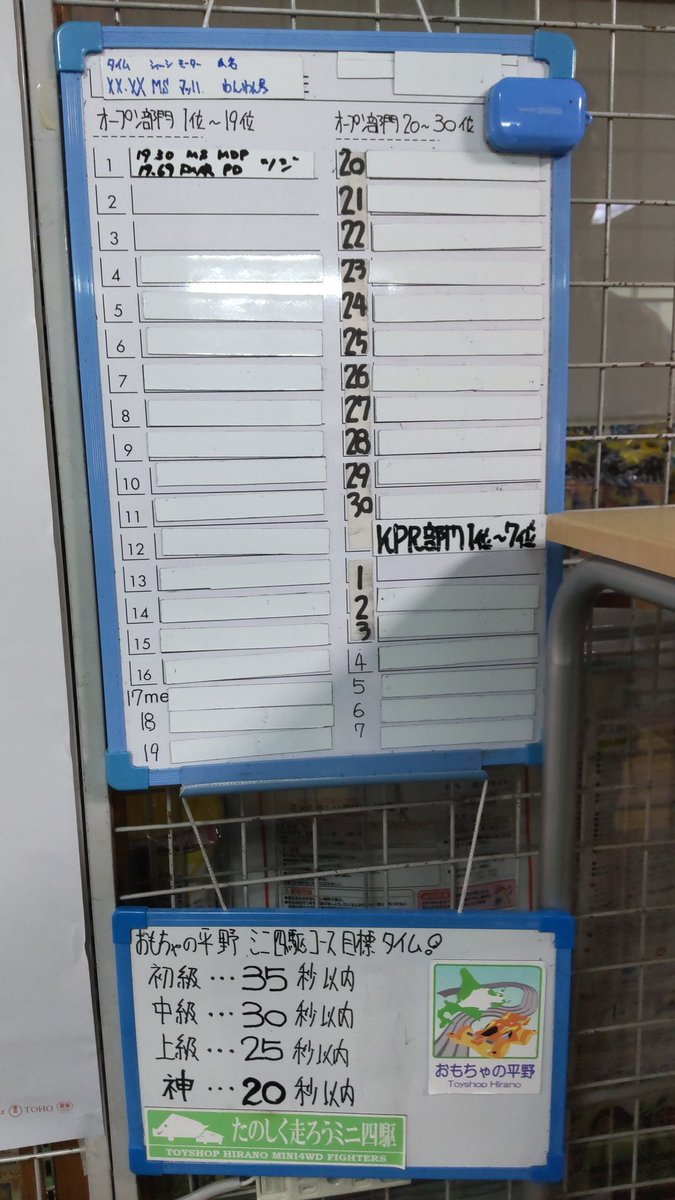 タイム シャーシ モーター 氏名
XX.XX MS マッハ わんわん号
オープン部門 1位～19位
1 19.30 MS MDP
17.69 FMAR PD
2
3
4
5
6
7
8
9
10
11
12
13
14
15
16
17me
18
19
オープン部門 20～30位
20
21
22
23
24
25
26
27
28
29
30
KPR部門 1位～7位
1
2
3
4
5
6
7
おもちゃの平野 ミニ四駆コース目標タイム!
初級…35秒以内
中級…30秒以内
上級…25秒以内
神…20秒以内
おもちゃの平野
Toyshop Hirano
たのしく走ろうミニ四駆
TOYSHOP HIRANO MINI4WD FIGHTERS
TOHO